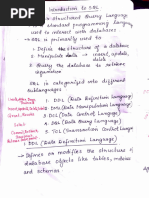 Introduction to SQL
Structured Query Language
Standard programming language
used to interact with databases
SQL is primarily used to
1. Define the structure of a database
2. Manipulate data → insert, update,
delete
3. Query the database to retrieve
SQL is categorized into different
sublanguages
1. DDL (Data Definition Language)
2. DML (Data Manipulation Language)
3. DCL (Data Control Language)
4. DQL (Data Query Language)
5. TCL (Transaction Control Language
1. DDL (Data Definition Language)
Defines or modifies the structure of
database objects like tables, indexes
and schemas